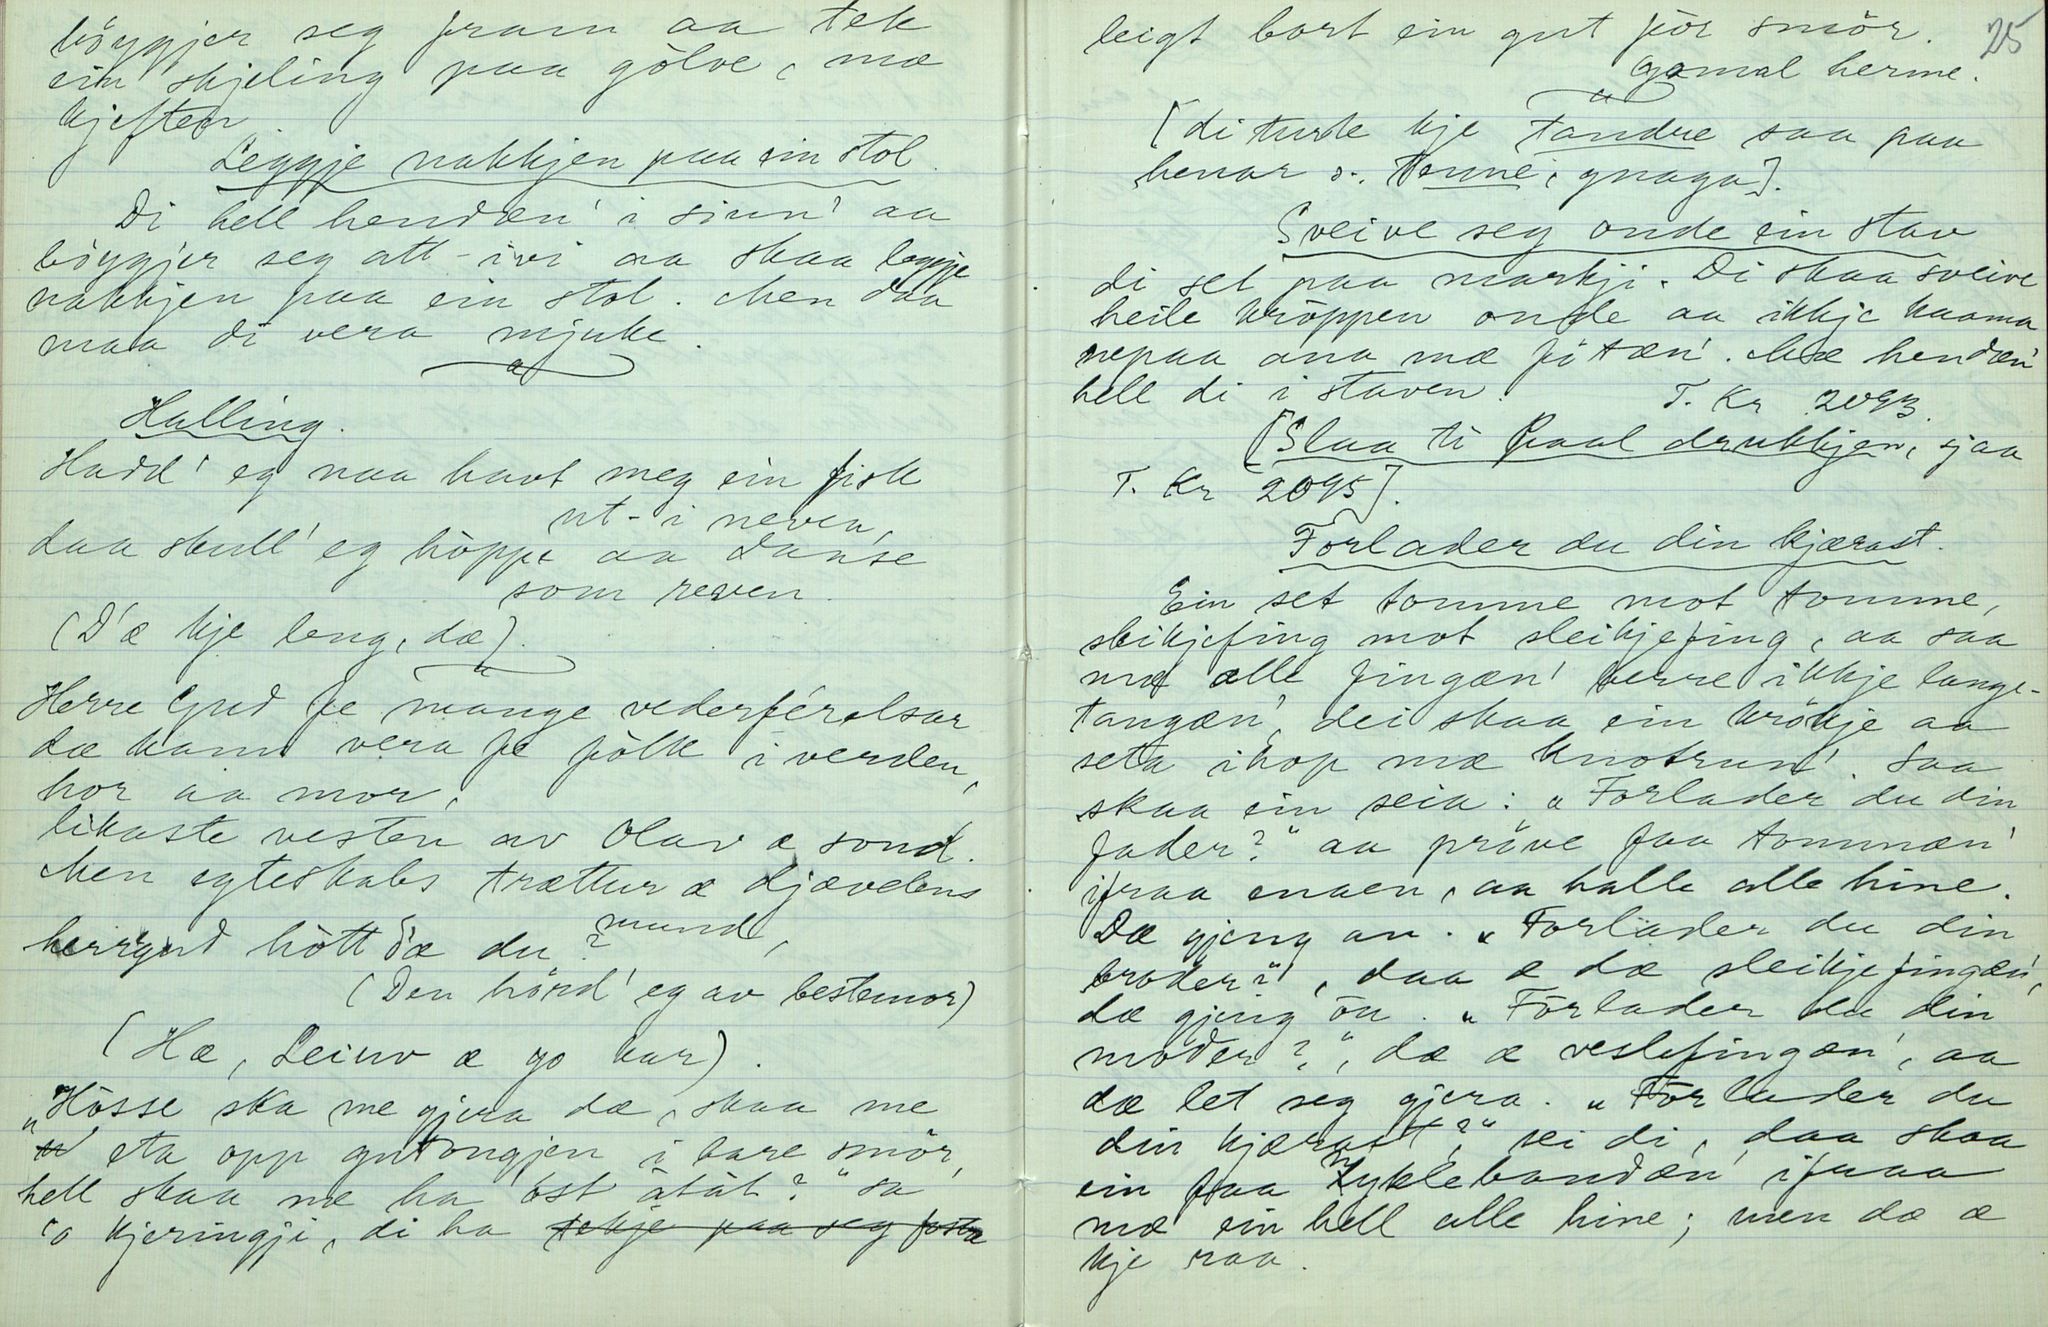 böygjer seg fram aa tek
ein skjeling paa gölve, mæ
kjeften.
Leggje nakkjen paa ein stol.
Di hell hendæn' i sinn' aa
böygjer seg att-ivi aa skaa leggje
nakkjen paa ein stol. Men daa
maa di vera mjuke.
Halling.
Hadd' eg naa havt meg ein fisk
ut-i neven,
daa skull' eg höppe aa danse
som reven.
(D'æ kje leng, dæ).
Herre Gud fe mange vederférelsar
dæ kann vera fe fölk i verden,
hor aa mor,
likaste vesten av Olav æ sond.
Men egteskabs trættur æ djævelens
mund,
herregud hött sæ du?
(Den hörd' eg av bestemor)
(Hæ, Leiuv æ go kar).
"Hösse ska me gjera dæ, skaa me
eta opp gutongjen i bare smör,
hell skaa me ha ost åtåt?" sa
o kjeringji, di ha tekje paa seg fostra
25
leigt bort ein gut för smör.
Gamal herme.
[di turte kje tandre saa paa
benar o. tenne, gnaga].
Sveive seg onde ein stav
di set paa markji. Di skaa sveive
heile kröppen onde aa ikkje kaama
nepaa ana mæ fötæn'. Mæ hendæn'
hell di i staven.
T. Kr 2093.
[Slaa ti Paal drukkjen, sjaa
T. Kr 2095].
Forlader du din kjærast.
Ein set tomme mot tomme,
sleikjefing mot sleikjefing, aa saa
mæ alle fingæn' verre ikkje lange-
tangæn', dei skaa ein krökje aa
seta ihop mæ knotrun'. Saa
skaa ein seia: "Forlader du din
fader?" aa pröve faa tommæn'
ifraa enaen, aa halle alle hine.
Dæ gjeng an. "Forlader du din
broder?", daa æ dæ sleikjefingæn',
dæ gjeng ön. "Forlader du din
moder?", dæ æ veslefingæn', aa
dæ let seg gjera. "Forlader du
din kjærast?" sei di, daa skaa
ein faa Lyklebandæn' ifraa
mæ ein hell alle hine; men dæ æ
kje raa.